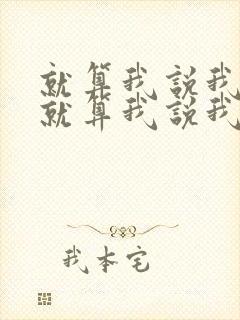 就算我説我
就算我説我
我本宅